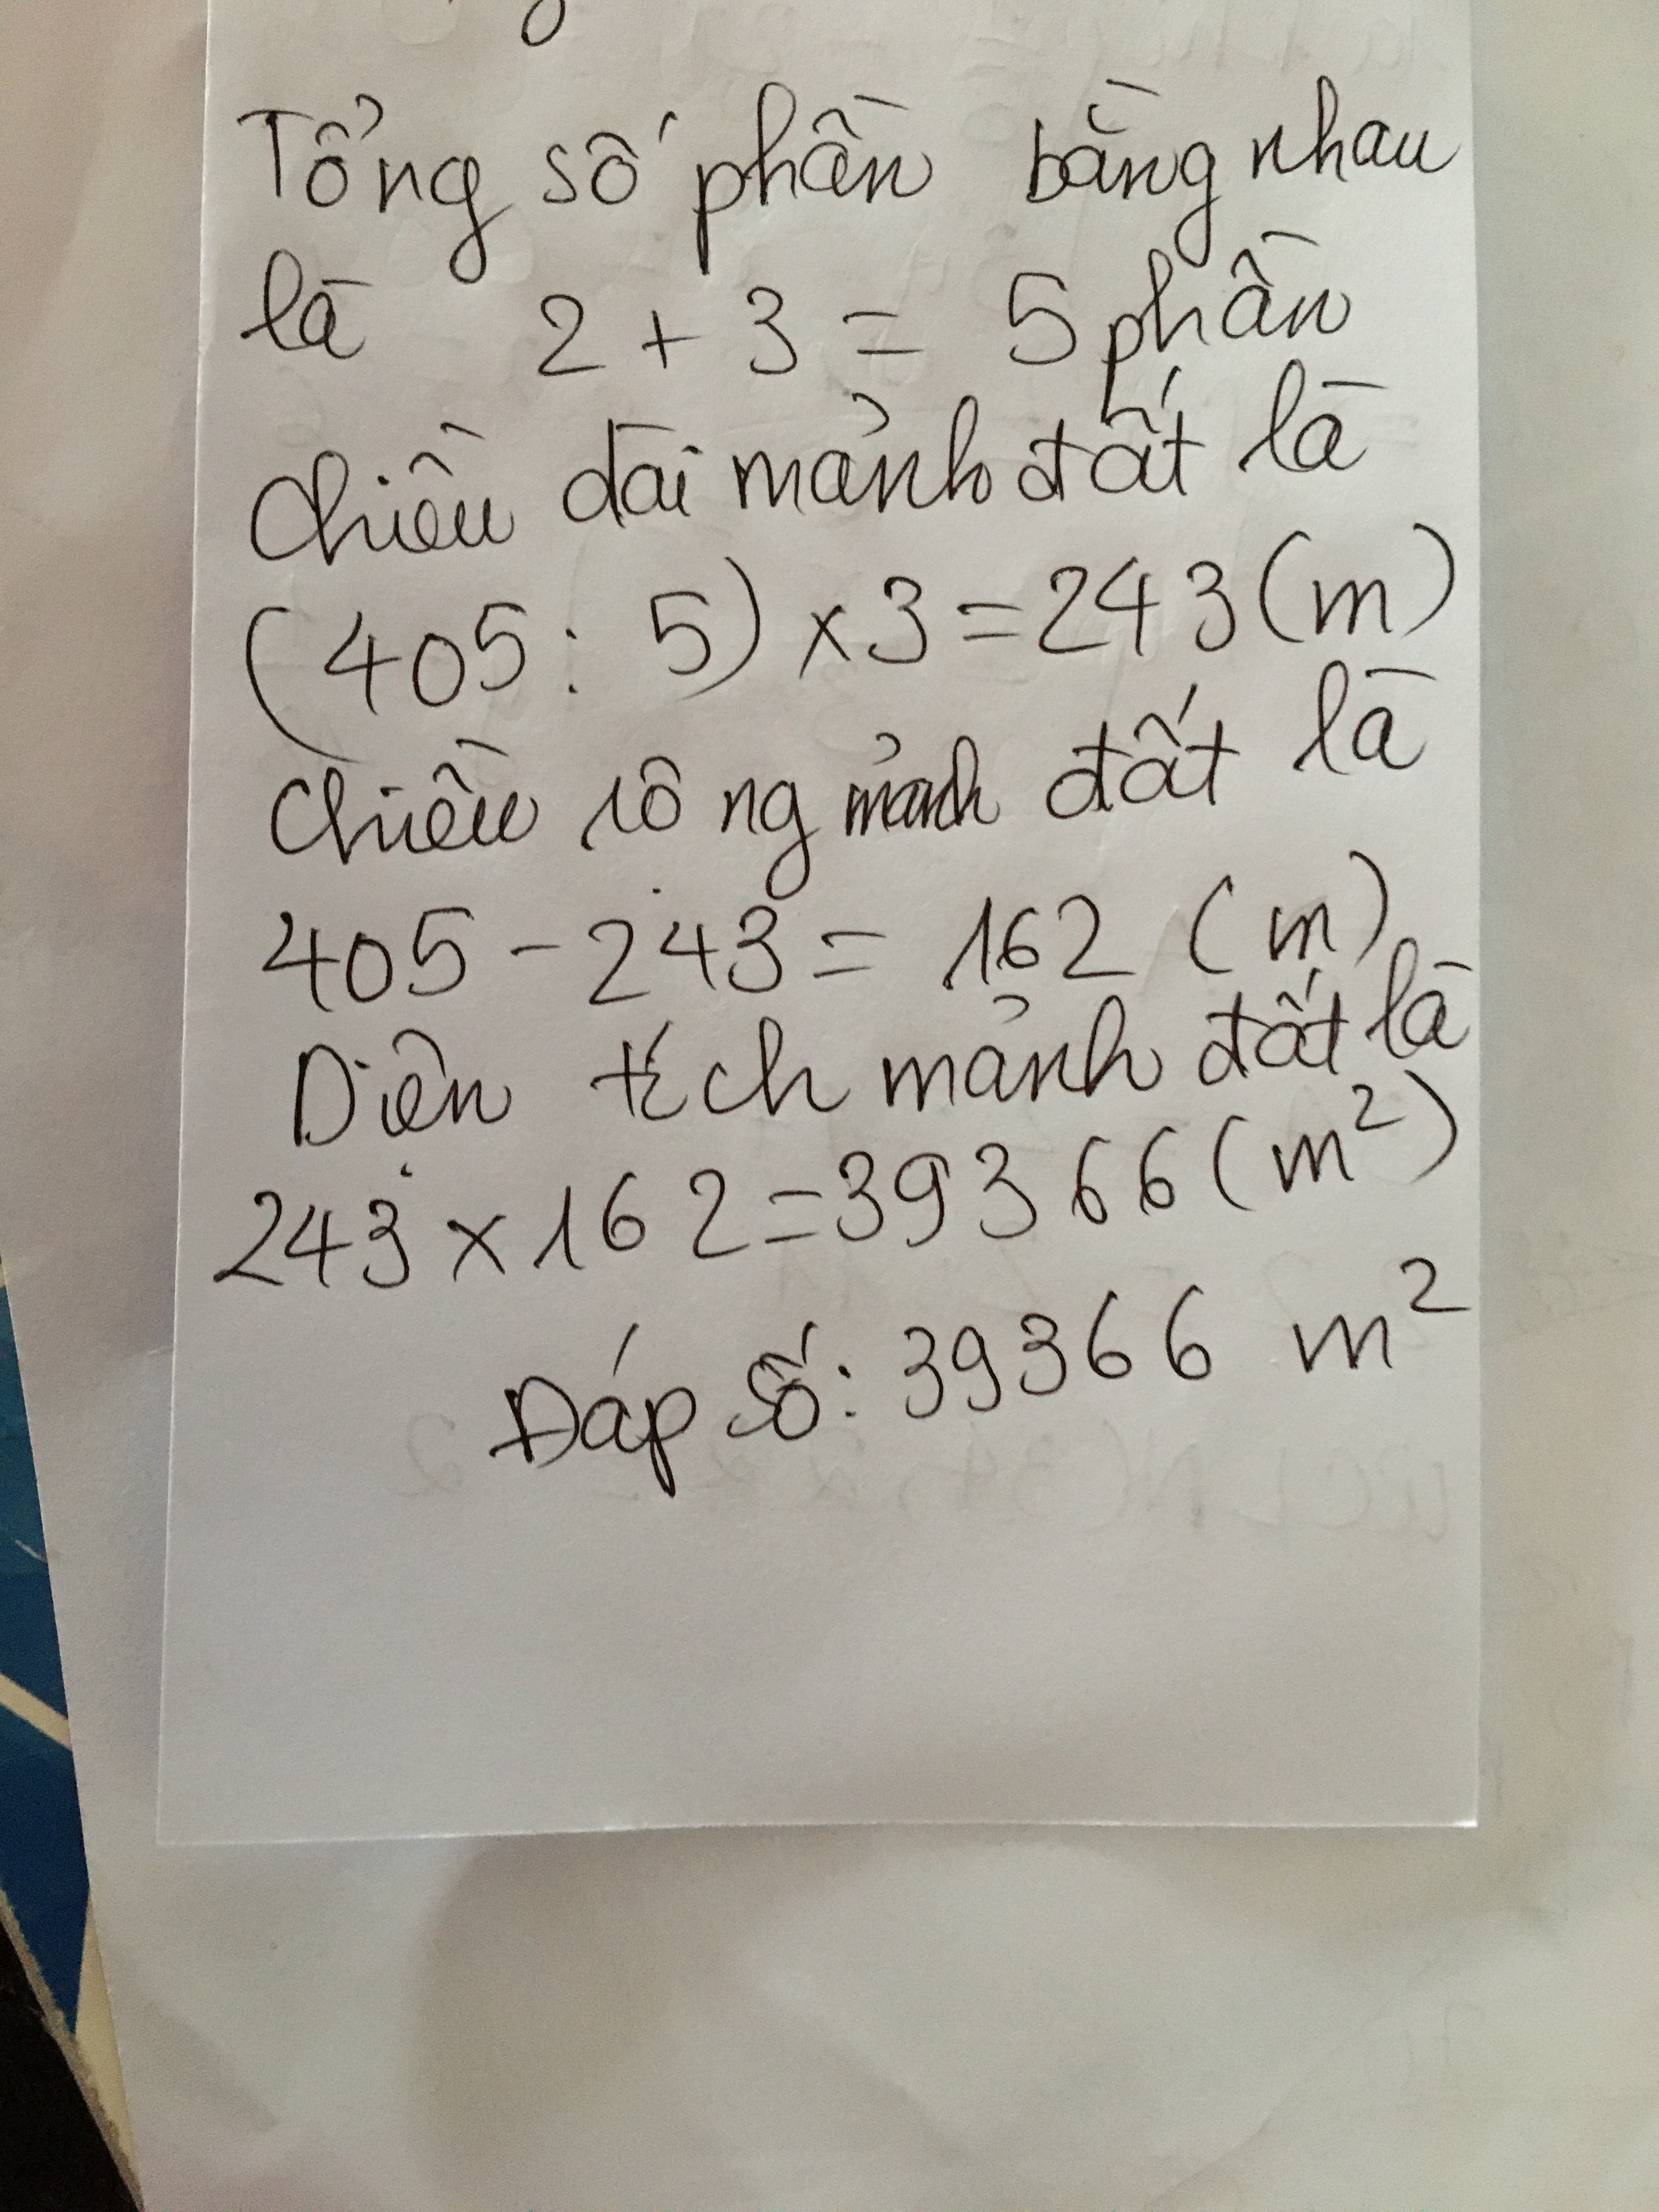 Tổng số phần bằng nhau
là 2 + 3 = 5 phần
Chiều dài mảnh đất là
(405 : 5) x 3 = 243 (m)
Chiều rộng mảnh đất là
405 - 243 = 162 (m)
Diện tích mảnh đất là
243 x 162 = 39366 (m²)
Đáp số: 39366 m²